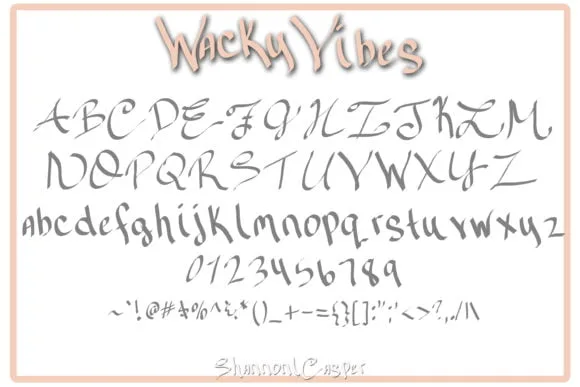 Wacky Vibes
ABCDEFGHIJKLM
NOPQRSTUVWXYZ
abcdefghijklmnopqrstuvwxyz
0123456789
~`!@#$%^&*()_+-={}[]:";'<>?,./|\
ShannonlCasper